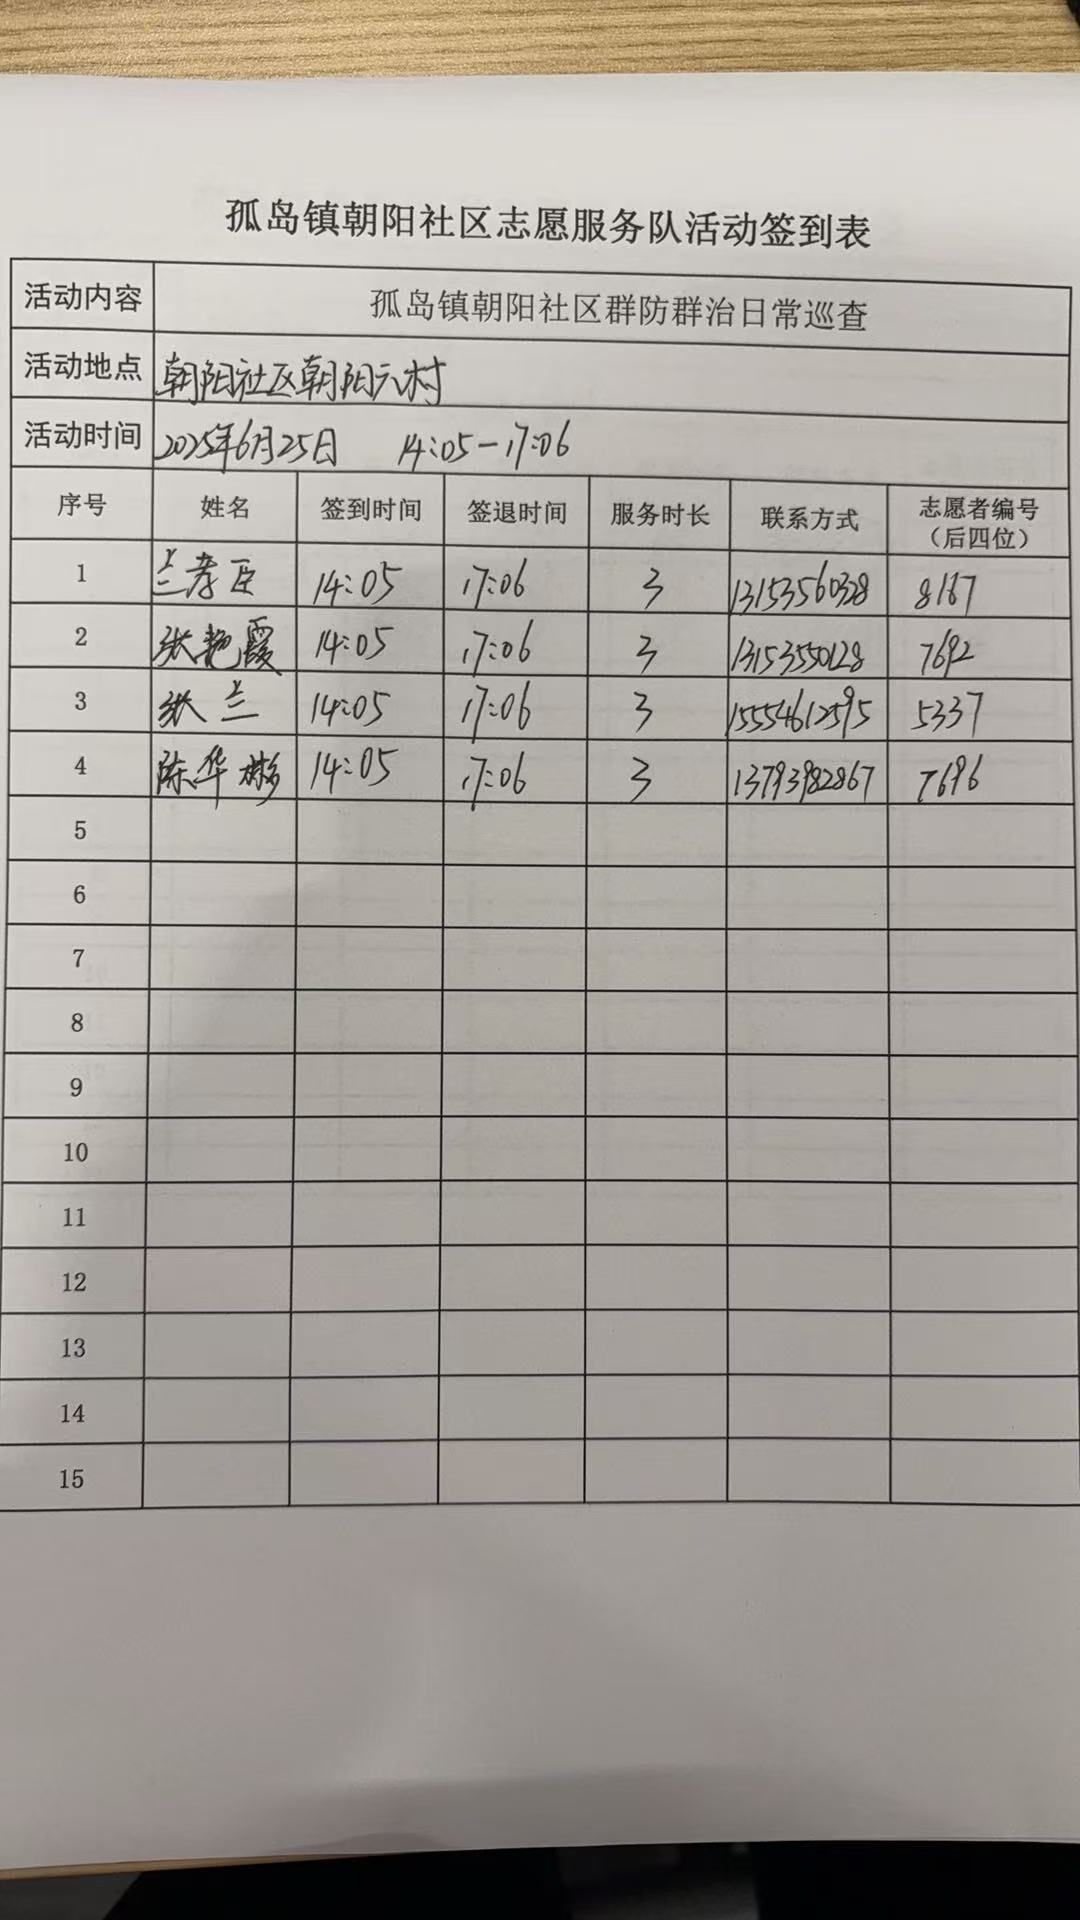 孤岛镇朝阳社区志愿服务队活动签到表
活动内容 孤岛镇朝阳社区群防群治日常巡查
活动地点 朝阳社区朝阳六村
活动时间 2025年6月25日 14:05-17:06
序号 姓名 签到时间 签退时间 服务时长 联系方式 志愿者编号（后四位）
1 兰孝臣 14:05 17:06 3 13153560328 8187
2 张艳霞 14:05 17:06 3 13153550128 7692
3 张兰 14:05 17:06 3 15554612595 5337
4 陈华彬 14:05 17:06 3 13793982867 7696
5
6
7
8
9
10
11
12
13
14
15